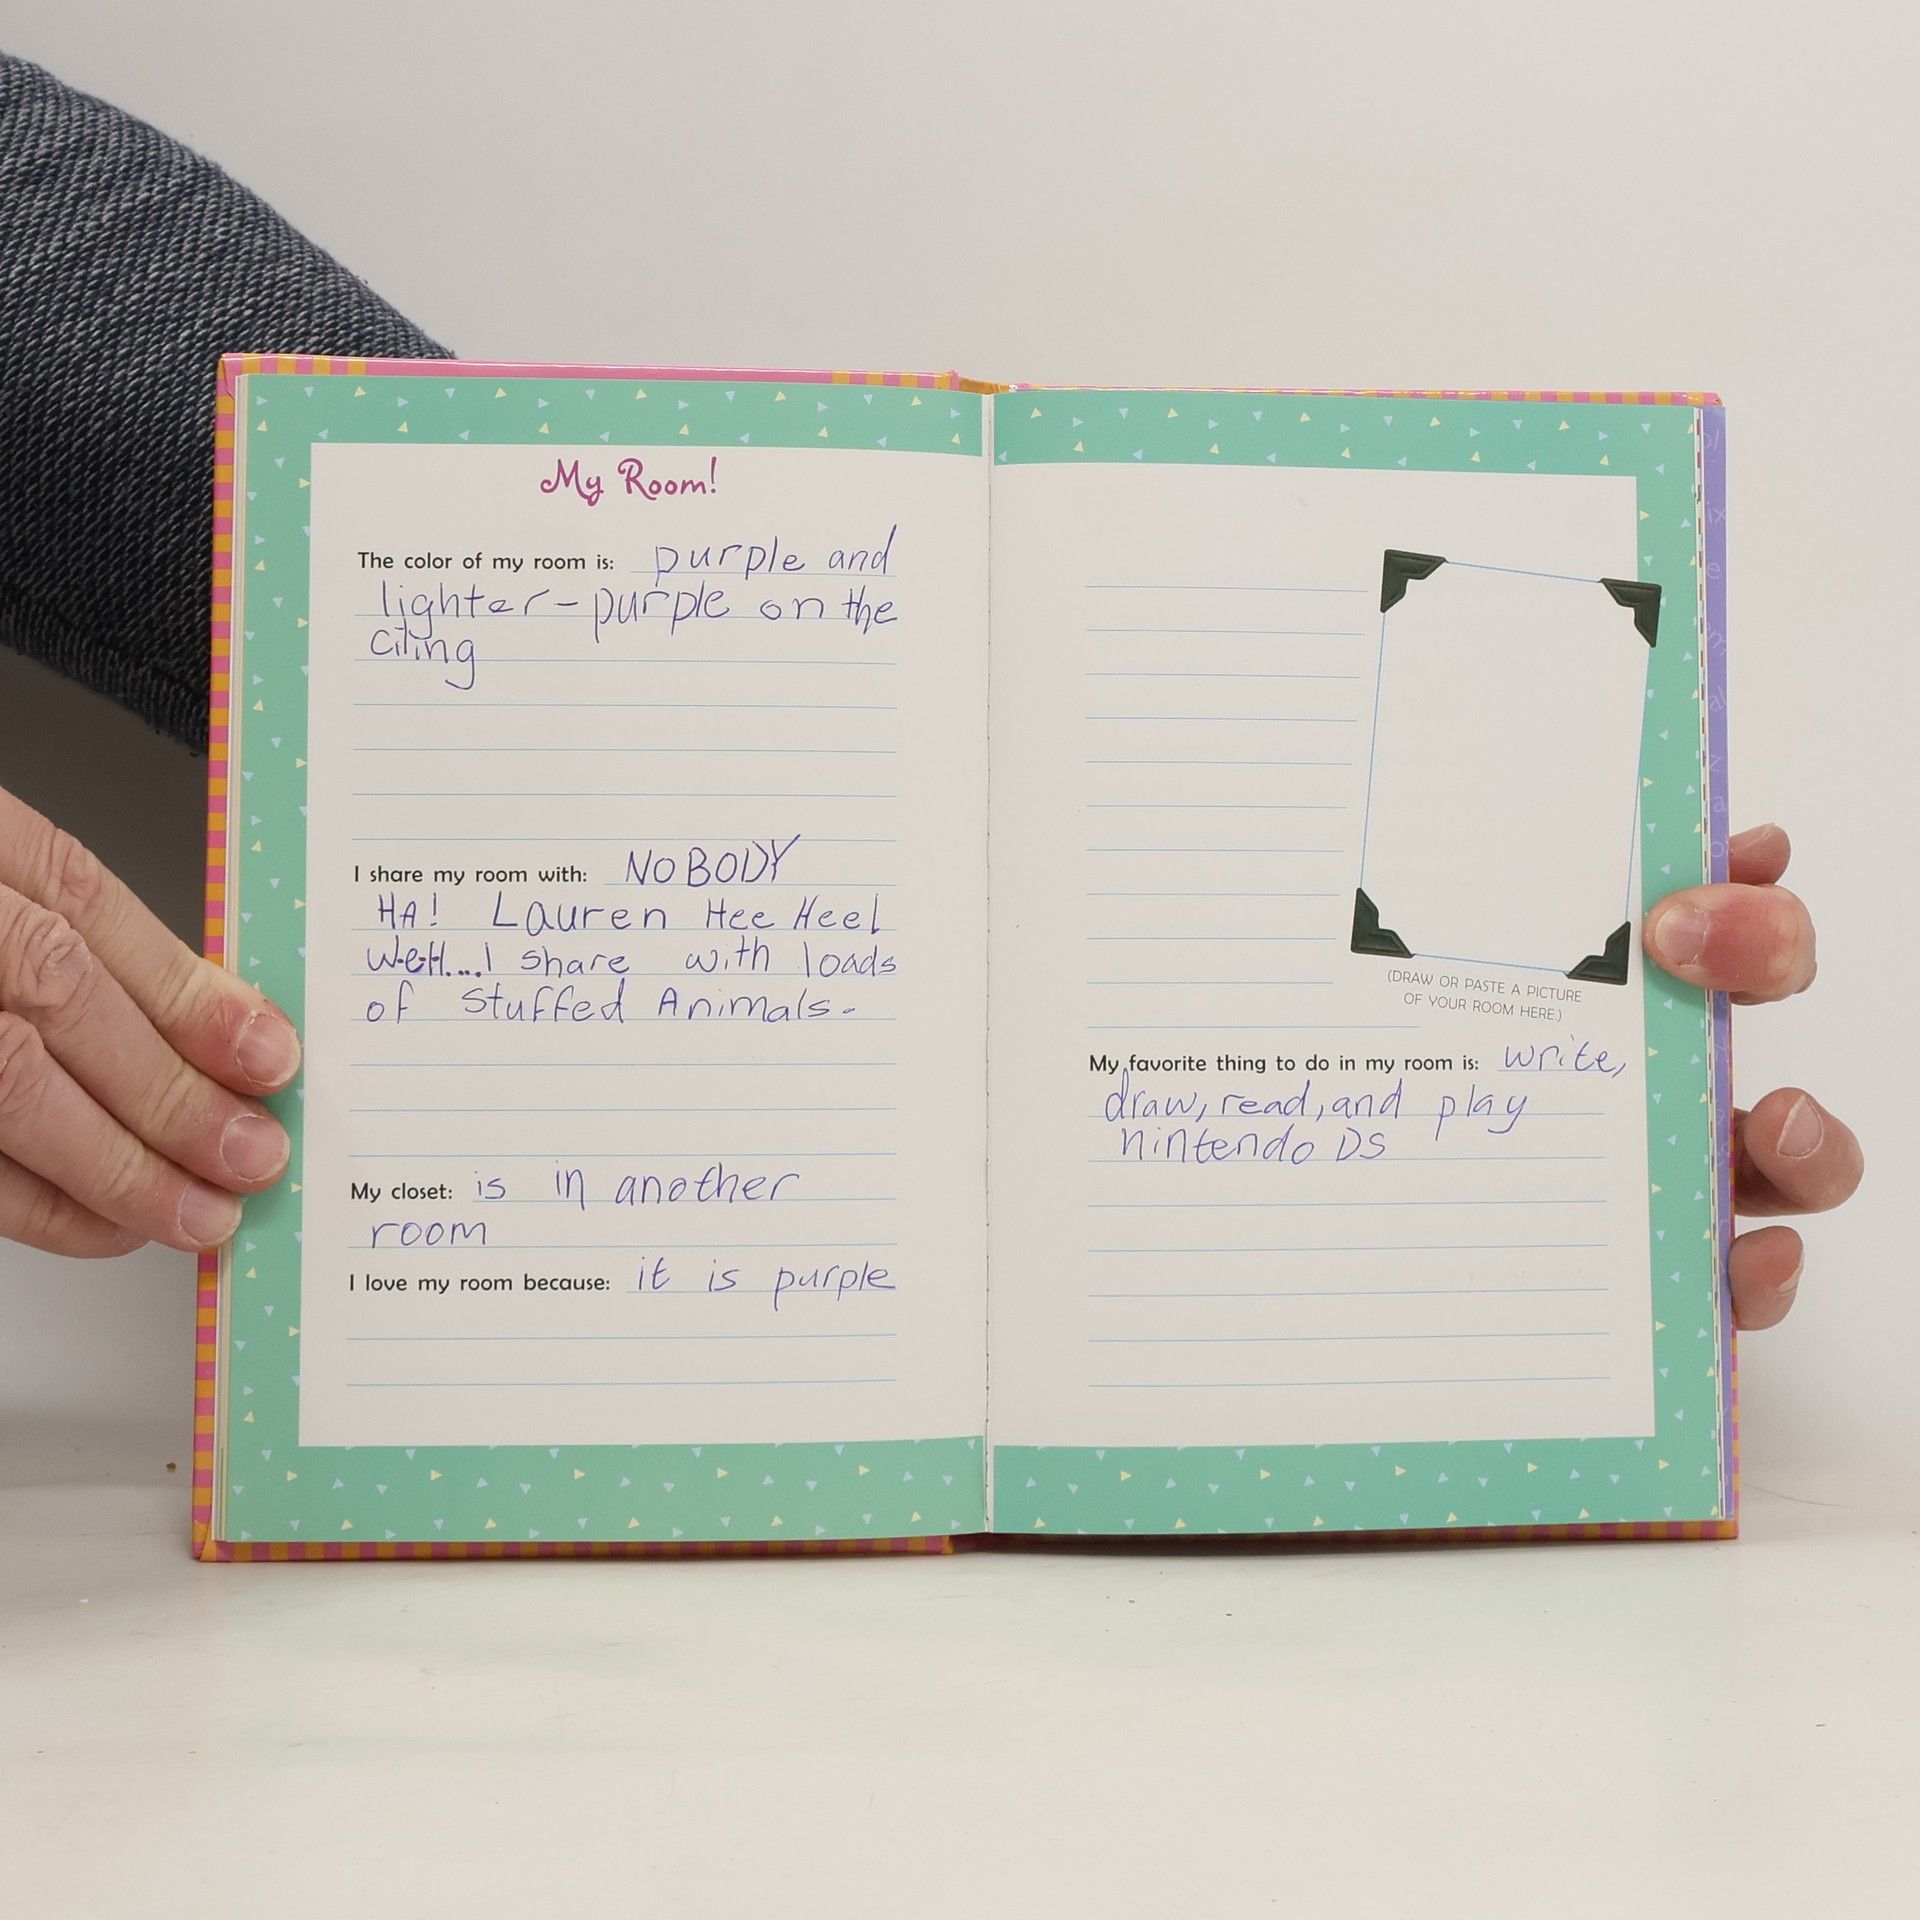 My Room!
The color of my room is: purple and
lighter-purple on the
citing
I share my room with: NOBODY
HA! Lauren Hee Hee!
well....I share with loads
of Stuffed Animals.
My closet: is in another
room
I love my room because: it is purple
(DRAW OR PASTE A PICTURE
OF YOUR ROOM HERE.)
My favorite thing to do in my room is: write,
draw, read, and play
nintendo DS